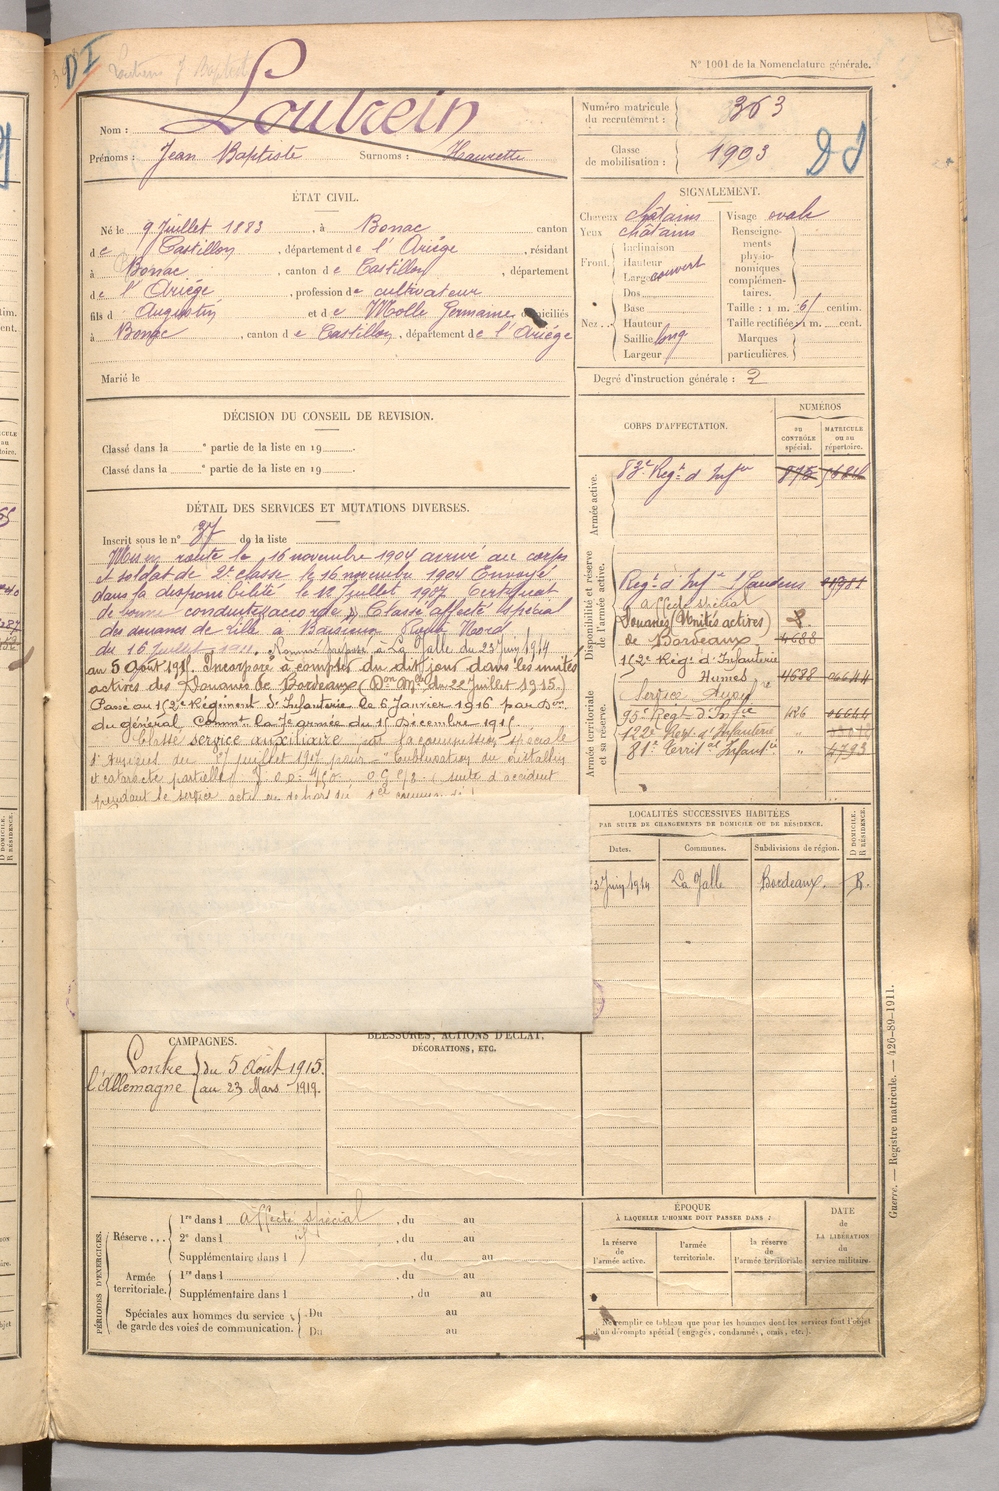 N° 1001 de la Nomenclature générale.
D I
Loutrein J Baptiste
Nom : Loutrein
Prénoms : Jean Baptiste Surnoms : Haurette
Numéro matricule du recrutement : 363
Classe de mobilisation : 1903
D I
ÉTAT CIVIL.
Né le 9 Juillet 1883, à Bonac canton
de Castillon, département de l'Ariège, résidant
à Bonac, canton de Castillon, département
de l'Ariège, profession de cultivateur
fils d'Augustin et de Molle Germaine domiciliés
à Bonac, canton de Castillon, département de l'Ariège
Marié le
SIGNALEMENT.
Cheveux châtains Visage ovale
Yeux châtains Renseigne-
ments
physio-
nomiques
complémen-
taires.
Front. Inclinaison
Hauteur
Larg couvert
Nez... Dos
Base Taille : 1 m. 61 centim.
Hauteur Taille rectifiée : 1 m. cent.
Saillie long Marques
Largeur particulières.
Degré d'instruction générale : 2
DÉCISION DU CONSEIL DE REVISION.
Classé dans la e partie de la liste en 19 .
Classé dans la e partie de la liste en 19 .
DÉTAIL DES SERVICES ET MUTATIONS DIVERSES.
Inscrit sous le n° 37 de la liste
Mis en route le 16 novembre 1904 arrivé au corps
et soldat de 2e classe le 16 novembre 1904 Envoyé
dans la disponibilité le 12 Juillet 1907 Certificat
de bonne conduite accordé. Classé affecté spécial
des douanes de Lille à Baisieux Nord
du 16 Juillet 1911. Nommé préposé à La Jalle du 23 Juin 1914
au 5 Août 1915. Incorporé à compter du dit jour dans les unités
actives des Douanes de Bordeaux (Don Mlle du 22 Juillet 1915.)
Passé au 152e Régiment d'Infanterie le 6 Janvier 1916 par Don
du général Commt la 7e armée du 15 Décembre 1915
Classé service auxiliaire par la commission spéciale
d'Asnières du 27 juillet 1917 pour
et cataracte partielle suite d'accident
CORPS D'AFFECTATION.
NUMÉROS
au CONTRÔLE spécial.
MATRICULE ou au répertoire.
Armée active.
83e Regt d'Infrie 876 5684
Disponibilité et réserve de l'armée active.
Regt d'Infie St Gaudens
affecté spécial
Douanes (Unités actives)
de Bordeaux 4688
152e Régt d'Infanterie
Humes 4688 06644
Armée territoriale et sa réserve.
Service Auxre
95e Regt d'Infie 126 06644
122e Regt d'Infanterie "
81e Territal Infantie " 4793
LOCALITÉS SUCCESSIVES HABITÉES
PAR SUITE DE CHANGEMENTS DE DOMICILE OU DE RÉSIDENCE.
Dates. Communes. Subdivisions de région. D DOMICILE. R RÉSIDENCE.
23 Juin 1914 La Jalle Bordeaux. R.
CAMPAGNES.
Contre l'Allemagne du 5 Août 1915.
au 23 Mars 1919.
BLESSURES, ACTIONS D'ÉCLAT,
DÉCORATIONS, ETC.
PÉRIODES D'EXERCICES.
Réserve... 1re dans l affecté spécial, du au
2e dans l id, du au
Supplémentaire dans l , du au
Armée territoriale. 1re dans l , du au
Supplémentaire dans l , du au
Spéciales aux hommes du service de garde des voies de communication. Du au
Du au
ÉPOQUE
À LAQUELLE L'HOMME DOIT PASSER DANS :
la réserve de l'armée active.
l'armée territoriale.
la réserve de l'armée territoriale
DATE de LA LIBÉRATION du service militaire.
Ne remplir ce tableau que pour les hommes dont les services font l'objet
d'un décompte spécial (engagés, condamnés, omis, etc.).
Guerre. — Registre matricule. — 426-89-1911.